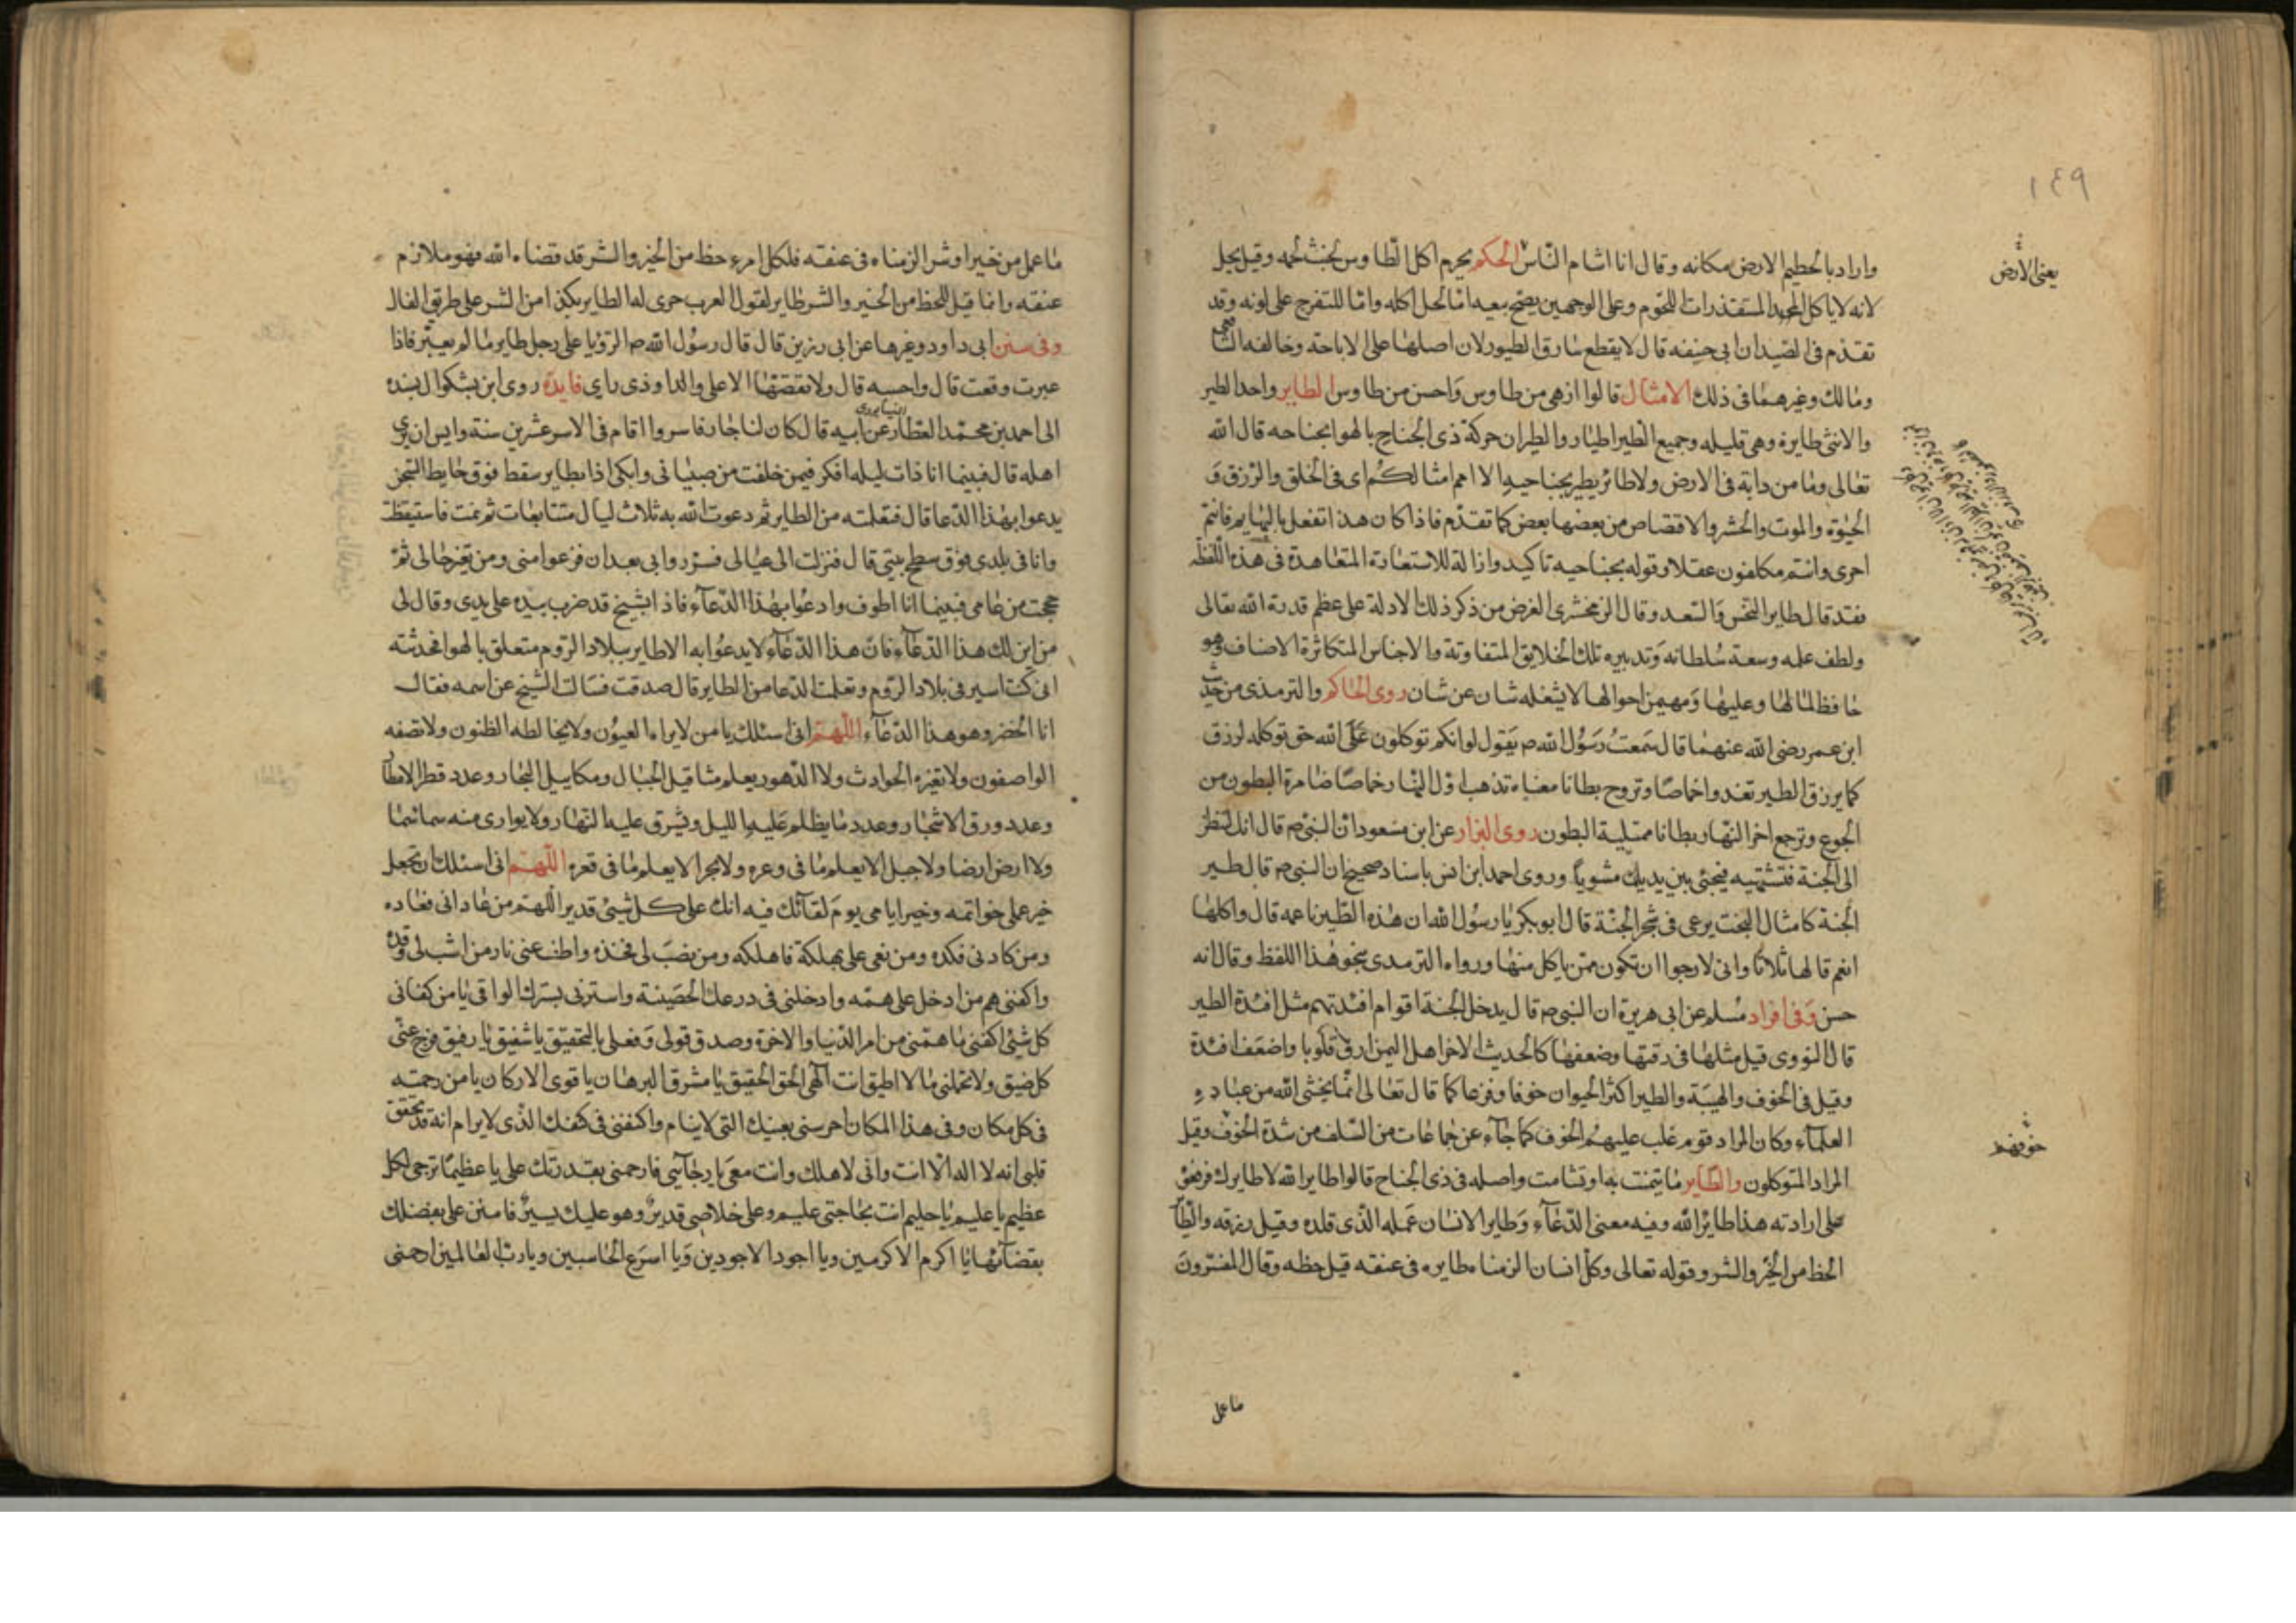 ١٤٩
يعنى الارض
واراد بالحطيم الارض مكانه وقال انا اشام الناس الحكم يحرم اكل الطاوس لخبث لحمه وقيل يحل
لانه لا ياكل المستقذرات اللحوم وعلى الوجهين يصح بيعه اما لحل اكله واما للتفرج على لونه وقد
تقدم فى الصيد ان ابى حنيفه قال لا يقطع سارق الطيور لان اصلها على الاباحة وخالفه الشافعى
ومالك وغيرهما فى ذلك الامثال قالوا ازهى من طاوس واحسن من طاوس الطاير واحد الطير
والانثى طايرة وهى قليله وجميع الطير اطيار والطيران حركة ذى الجناح بالهوا بجناحه قال الله
تعالى وما من دابة فى الارض ولا طائر يطير بجناحيه الا امم امثالكم اى فى الخلق والرزق و
الحيوة والموت والحشر والاقتصاص من بعضها بعض كما تقدم فاذا كان هذا تفعل بالبهايم فانتم
احرى وانتم مكلفون عقلا وقوله بجناحيه تاكيد وازالة للاستعارة المتعاهدة فى هذه اللفظه
فقد قال طاير النحس والسعد وقال الزمخشرى الغرض من ذكر ذلك الادلة على عظم قدرة الله تعالى
ولطف علمه وسعة سلطانه وتدبيره تلك الخلايق المتفاوتة والاجناس المتكاثرة الاصناف وهو
حافظ لما لها وعليها ومهيمن احوالها لا يشغله شان عن شان روى الحاكم والترمذى من حديث
ابن عمر رضى الله عنهما قال سمعت رسول الله ص يقول لو انكم توكلون على الله حق توكله لرزق
كما يرزق الطير تغدوا خماصا وتروح بطانا معناه تذهب اول النهار خماصا ضامرة البطون من
الجوع وترجع اخر النهار بطانا ممتلية البطون روى البزار عن ابن مسعود ان النبى ص قال انك لتنظر
الى الجنة فتشتهيه فيجئ بين يديك مشويا وروى احمد ابن انس باسناد صحيح ان النبى ص قال طير
الجنة كامثال البخت يرعى فى شجر الجنة قال ابو بكر يا رسول الله ان هذه الطير ناعمه قال واكلها
انعم قالها ثلاثا وانى لارجوا ان تكون ممن ياكل منها ورواه الترمدى بنحو هذا اللفظ وقال انه
حسن وفى افراد مسلم عن ابى هريرة ان النبى ص قال يدخل الجنة اقوام افئدتهم مثل افئدة الطير
قال النووى قيل مثلها فى رقتها وضعفها كالحديث الاخر اهل اليمن ارق قلوبا واضعف افئدة
وقيل فى الخوف والهيبة والطير اكثر الحيوان خوفا وفزعا كما قال تعالى انما يخشى الله من عباده
العلماء وكان المراد قوم غلب عليهم الخوف كما جاء عن جماعات من السلف من شدة الخوف وقيل
خوفهم
المراد المتوكلون والطاير ما يتمنت به او تشامت واصله فى ذى الجناح قالوا طاير الله لا طايرك فرفعو
على ارادته هذا طائر الله وفيه معنى الدعاء وطاير الانسان عمله الذى قلده وقيل رزقه والطاير
الحظ من الخير والشر وقوله تعالى وكل انسان الزمناه طايره فى عنقه قيل حظه وقال المفسرون
ما عمل
ما عمل من خير او شر الزمناه فى عنقه فلكل امرء حظ من الخير والشر قد قضاه الله فهو ملازم
عنقه وانما قيل للحظ من الخير والشر طاير لقول العرب جرى له الطاير بكذا من الشر على طريق الفال
وفى سنن ابى داود وغيرها عن ابى رزين قال قال رسول الله ص الرؤيا على رجل طاير ما لم يعبر فاذا
عبرت وقعت قال واحسبه قال ولا تقصها الا على واد او ذى راي فايدة روى ابن بشكوال بسنده
الى احمد بن محمد العطار عن ابيه قال كان لنا جار فاسروا اقام فى الاسر عشرين سنة وايس ان يرى
اهله قال فبينما انا ذات ليله افكر فيمن خلفت من صبيانى وابكى اذا بطاير سقط فوق حايط السجن
يدعوا بهذا الدعا قال فتعلمته من الطاير ثم دعوت الله به ثلاث ليال متتابعات ثم نمت فاستيقظت
وانا فى بلدى فوق سطح بيتى قال فنزلت الى عيالى فسروا بى بعد ان فزعوا منى ومن تغير حالى ثم
حججت من عامى فبينما انا اطوف وادعوا بهذا الدعاء فاذا بشيخ قد ضرب بيده على يدى وقال لى
من اين لك هذا الدعاء فان هذا الدعاء لا يدعوا به الا طاير ببلاد الروم متعلق بالهوا فحدثته
انى كنت اسير فى بلاد الروم وتعلمت الدعا من الطاير قال صدقت فسالت الشيخ عن اسمه فقال
انا الخضر وهو هذا الدعاء اللهم انى اسئلك يا من لا يراه العيون ولا يخالطه الظنون ولا تصفه
الواصفون ولا يغيره الحوادث ولا الدهور يعلم مثاقيل الجبال ومكاييل البحار وعدد قطر الامطار
وعدد ورق الاشجار وعدد ما يظلم عليه الليل وشرق عليه النهار ولا يوارى منه سما سما
ولا ارض ارضا ولا جبل الا يعلم ما فى وعره ولا بحر الا يعلم ما فى قعره اللهم انى اسئلك ان تجعل
خير عملى خواتمه وخير ايامى يوم لقائك فيه انك على كل شئ قدير اللهم من عادانى فعاده
ومن كادنى فكده ومن بغى على بهلكة فاهلكه ومن نصب لى فخذه واطف عنى نار من اشب لى وقده
واكفنى هم من ادخل على همه وادخلنى فى درعك الحصينة واسترنى بسترك الواقى يا من كفانى
كل شئ اكفنى ما همنى من امر الدنيا والاخرة وصدق قولى وفعلى بالتحقيق يا شفيق يا رفيق فرج عنى
كل ضيق ولا تحملنى ما لا اطيق انت الهى الحق الحقيق يا مشرق البرهان يا قوى الاركان يا من رحمته
فى كل مكان وفى هذا المكان احرسنى بعينك التى لا ينام واكنفنى فى كنفك الذى لا يرام انه قد تحقق
قلبى انه لا اله الا انت وانى لا هلك وانت معى يا رجائى فارحمنى بقدرتك على يا عظيما ترجى لكل
عظيم يا عليم يا حليم انت بحاجتى عليم وعلى خلاصى قدير وهو عليك يسير فامنن على بفضلك
بقضائها يا اكرم الاكرمين ويا اجود الاجودين ويا اسرع الحاسبين ويا رب العالمين ارحمنى